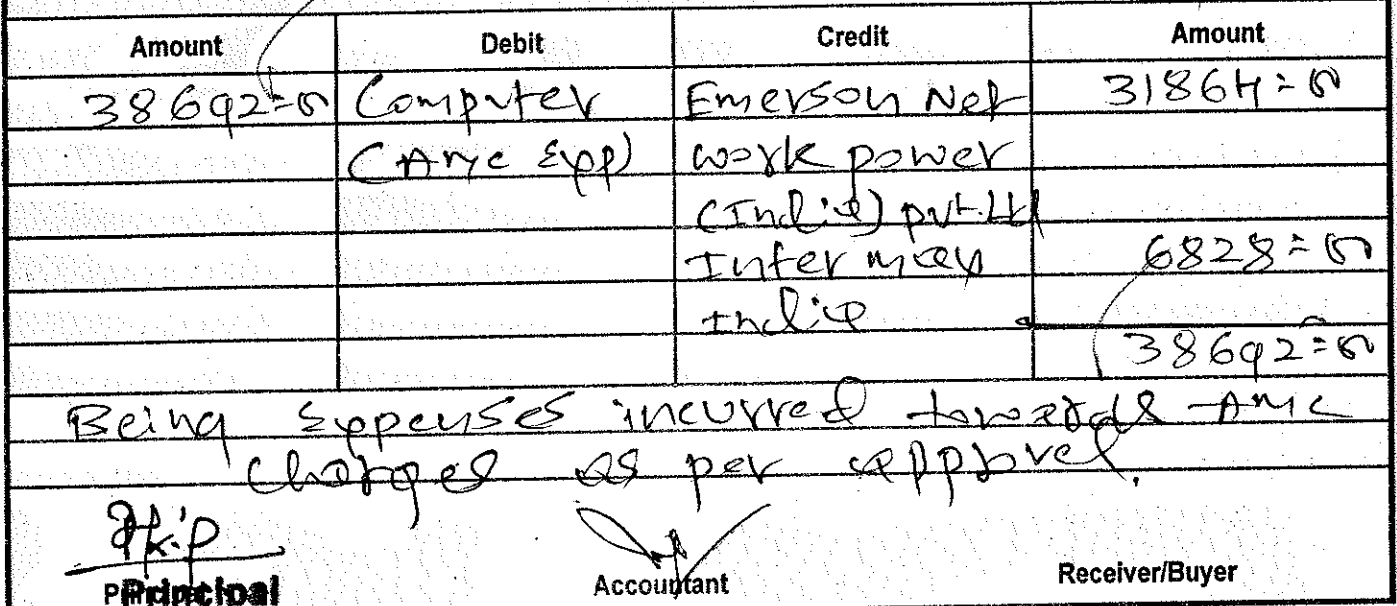 Amount Debit Credit Amount
38692=00 Computer Emerson Net 31864=00
(AMC Exp) work power
(India) pvt. Ltd
Inter 6828=00
India
38692=00
Being Expenses incurred towards AMC
Charges as per approvel.
Principal Accountant Receiver/Buyer